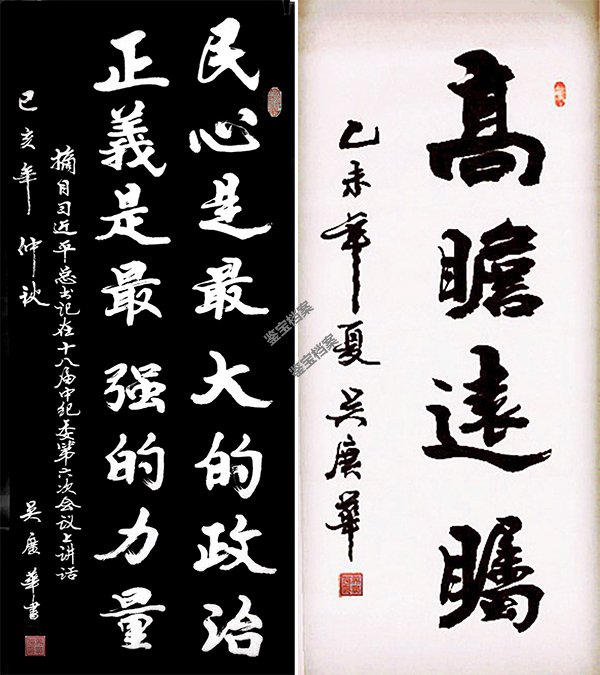 民心是最大的政治
正義是最强的力量
摘自习近平总书记在十八届中纪委第六次会议上讲话
己亥年仲秋 吴廣華書
高瞻遠矚
乙未年夏 吴廣華
鉴宝档案
鉴宝档案